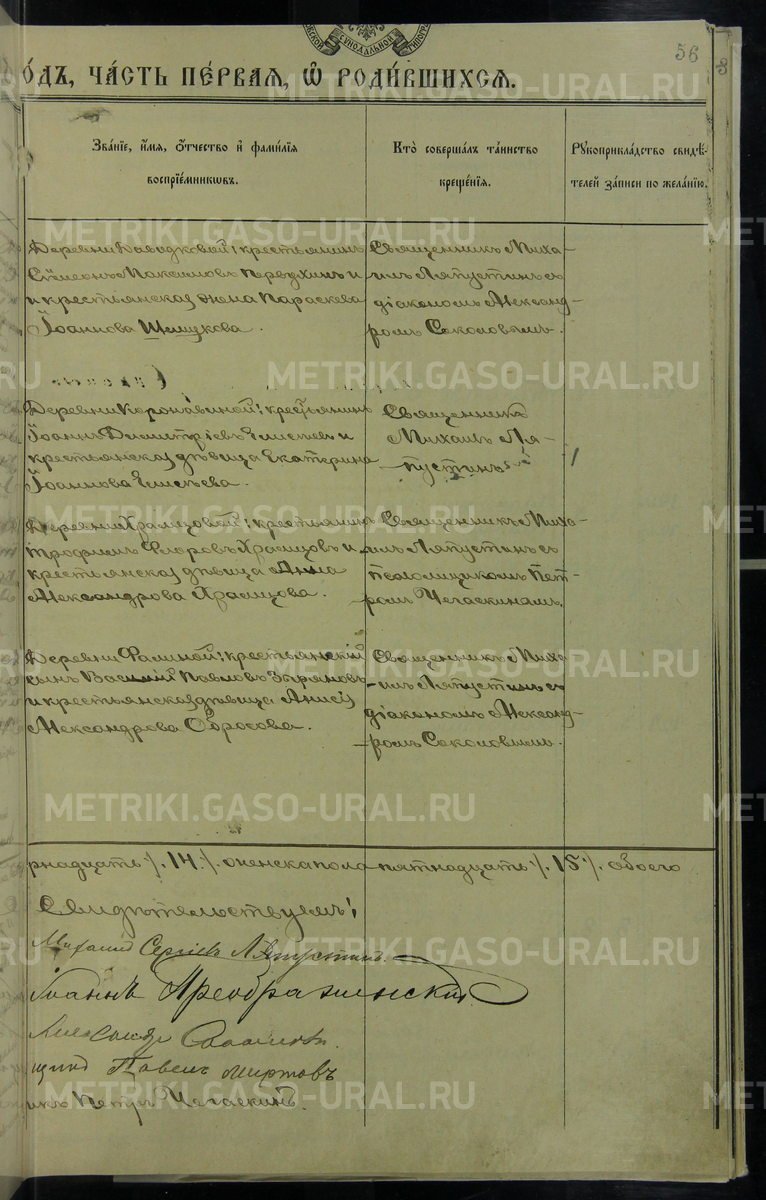 СУНОДАЛЬНОЙ
56
ОДЪ, ЧАСТЬ ПЕРВАЯ, Ѡ РОДИВШИХСЯ.
Званіе, имя, отчество и фамилія
воспріемниковъ.
Кто совершалъ таинство
крещенія.
Рукоприкладство свидѣ-
телей записи по желанію.
Деревни крестьянинъ
Симеонъ Максимовъ и
и крестьянская жена Параскева
Іоаннова Шешукова.
Священникъ Миха-
илъ Ляпустинъ съ
діакономъ Александ-
ромъ Соколовымъ.
Деревни крестьянинъ
Іоаннъ Димитріевъ Елисѣевъ и
крестьянская дѣвица Екатерина
Іоаннова Елисѣева.
Священникъ
Михаилъ Ля-
пустинъ
Деревни Храмцовой: крестьянинъ
Трофимъ Флоровъ Храмцовъ и
крестьянская дѣвица Анна
Александрова Храмцова.
Священникъ Миха-
илъ Ляпустинъ съ
псаломщикомъ Пет-
ромъ Чечаскинымъ.
Деревни Фоминой: крестьянскій
сынъ Василій Павловъ Зыряновъ
и крестьянская дѣвица Анисія
Александрова Обросова.
Священникъ Миха-
илъ Ляпустинъ съ
діакономъ Александ-
ромъ Соколовымъ.
рнадцать /. 14 /. женска пола пятнадцать /. 15 /. обоего
Свидѣтельствуемъ:
Михаилъ Сергіевъ Ляпустинъ.
Іоаннъ Преображенскій
Александръ Соколовъ.
Павелъ Миртовъ
икъ Петръ Чечаскинъ.
METRIKI.GASO-URAL.RU